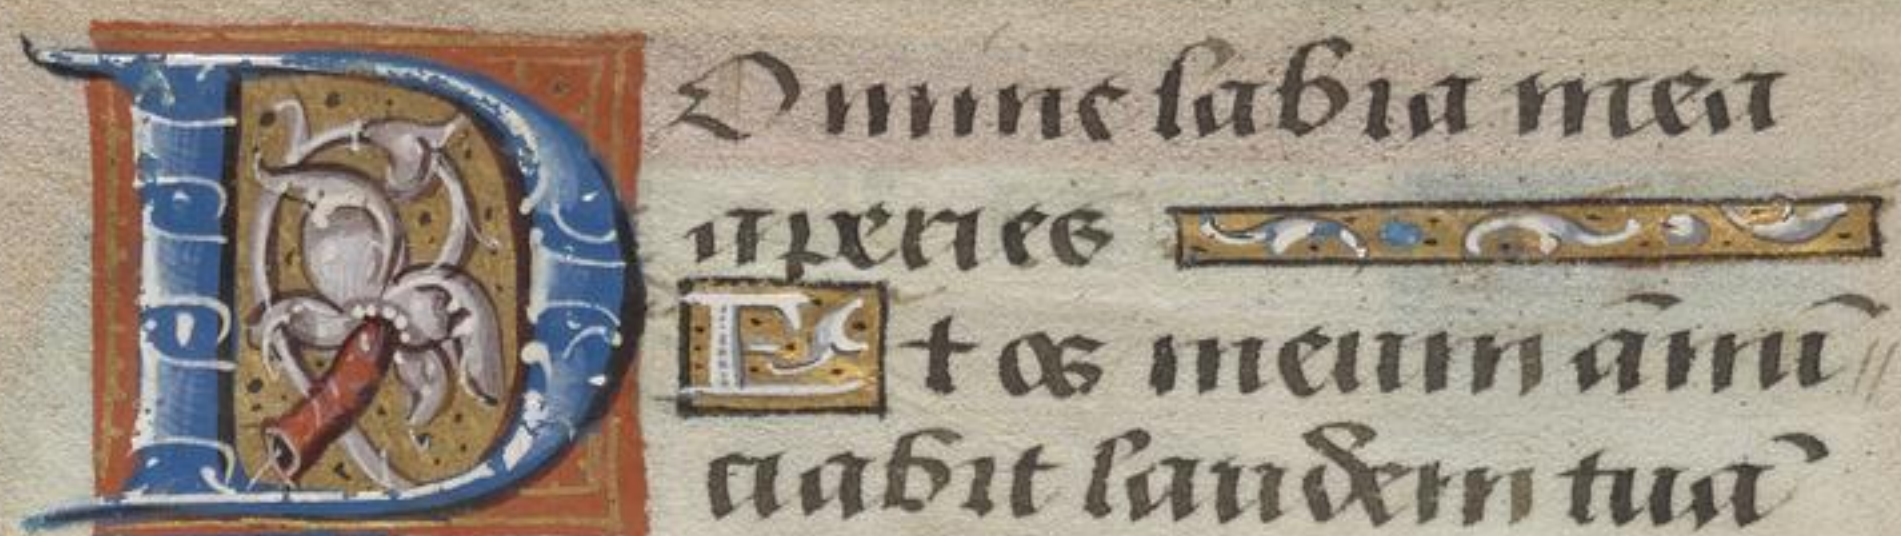 DOmine labia mea
aperies
Et os meum ānū
ciabit laudem tuā